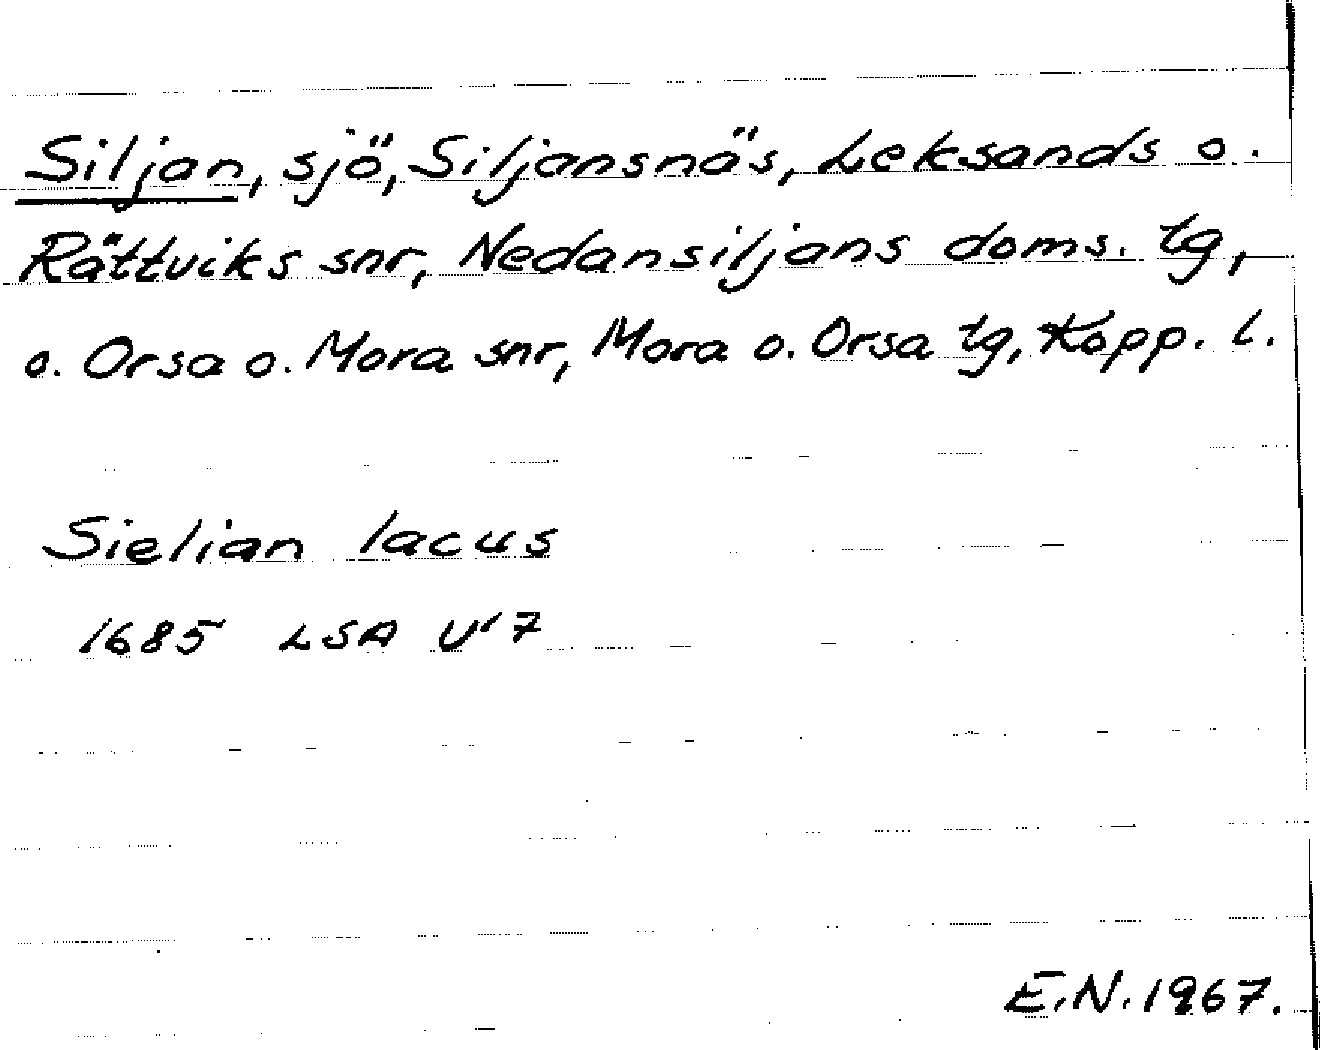 Siljan, sjö, Siljansnäs, Leksands o.
Rättviks snr, Nedansiljans doms. tg,
o. Orsa o. Mora snr, Mora o. Orsa tg, Kopp. l.
Sielian lacus
1685 LSA U'7
E.N. 1967.